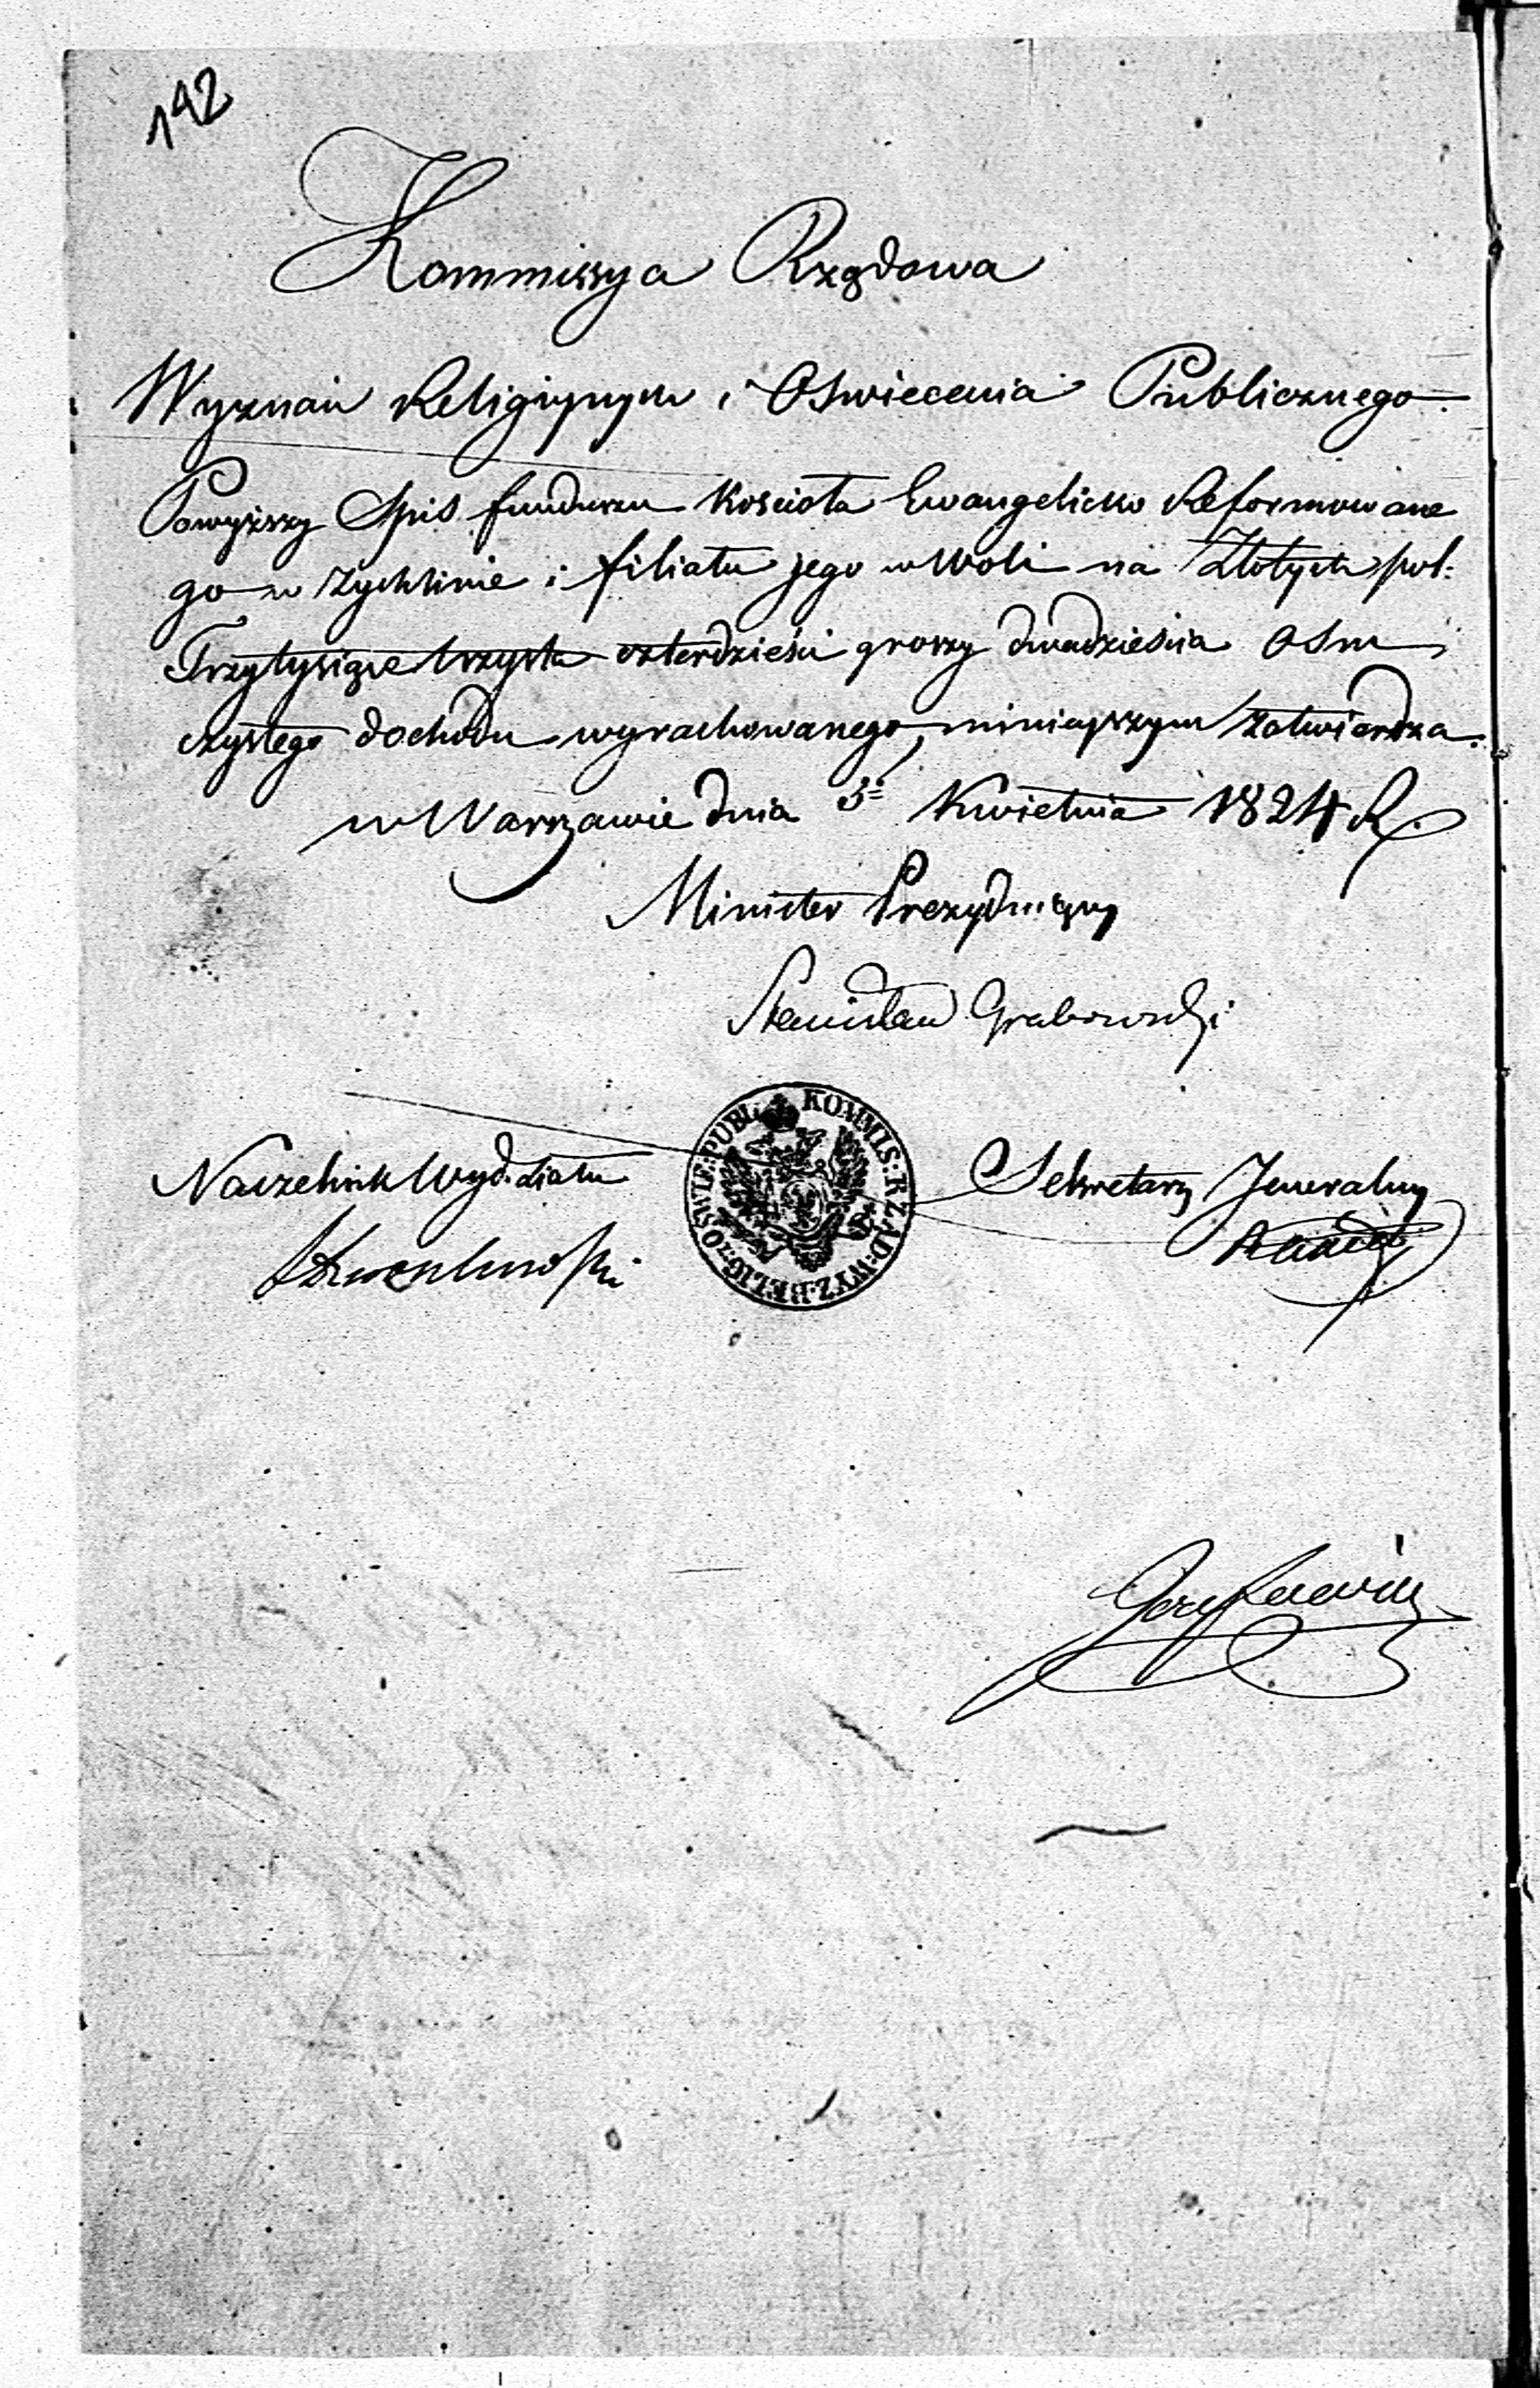 142
Kommissya Rządowa
Wyznań Religiynych i Oswiecenia Publicznego.
Powyższy Spis funduszu Kościoła Ewangelicko Reformowane
go w Zychlinie i filiału jego w Woli na Złotych pol:
Trzytysiące trzysta czterdzieści groszy dwadzieścia osm
czystego dochodu wyrachowanego, ninieyszym zatwierdza.
w Warszawie dnia 3 Kwietnia 1824 R.
Minister Prezyduiący
Stanisław Grabowski
KOMMIS: RZĄD: WYZ: RELIG: i OSWIE: PUBL:
Naczelnik Wydziału
Sekretarz Jeneralny